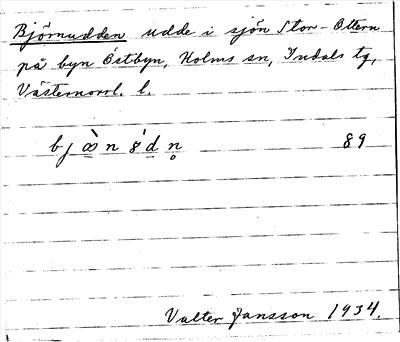 Björnudden udde i sjön Stor-Ottern
på byn Östbyn, Holms sn, Indals tg,
Västernorrl. l.
bjœ̀n8́dn̥ 89
Valter Jansson 1934.